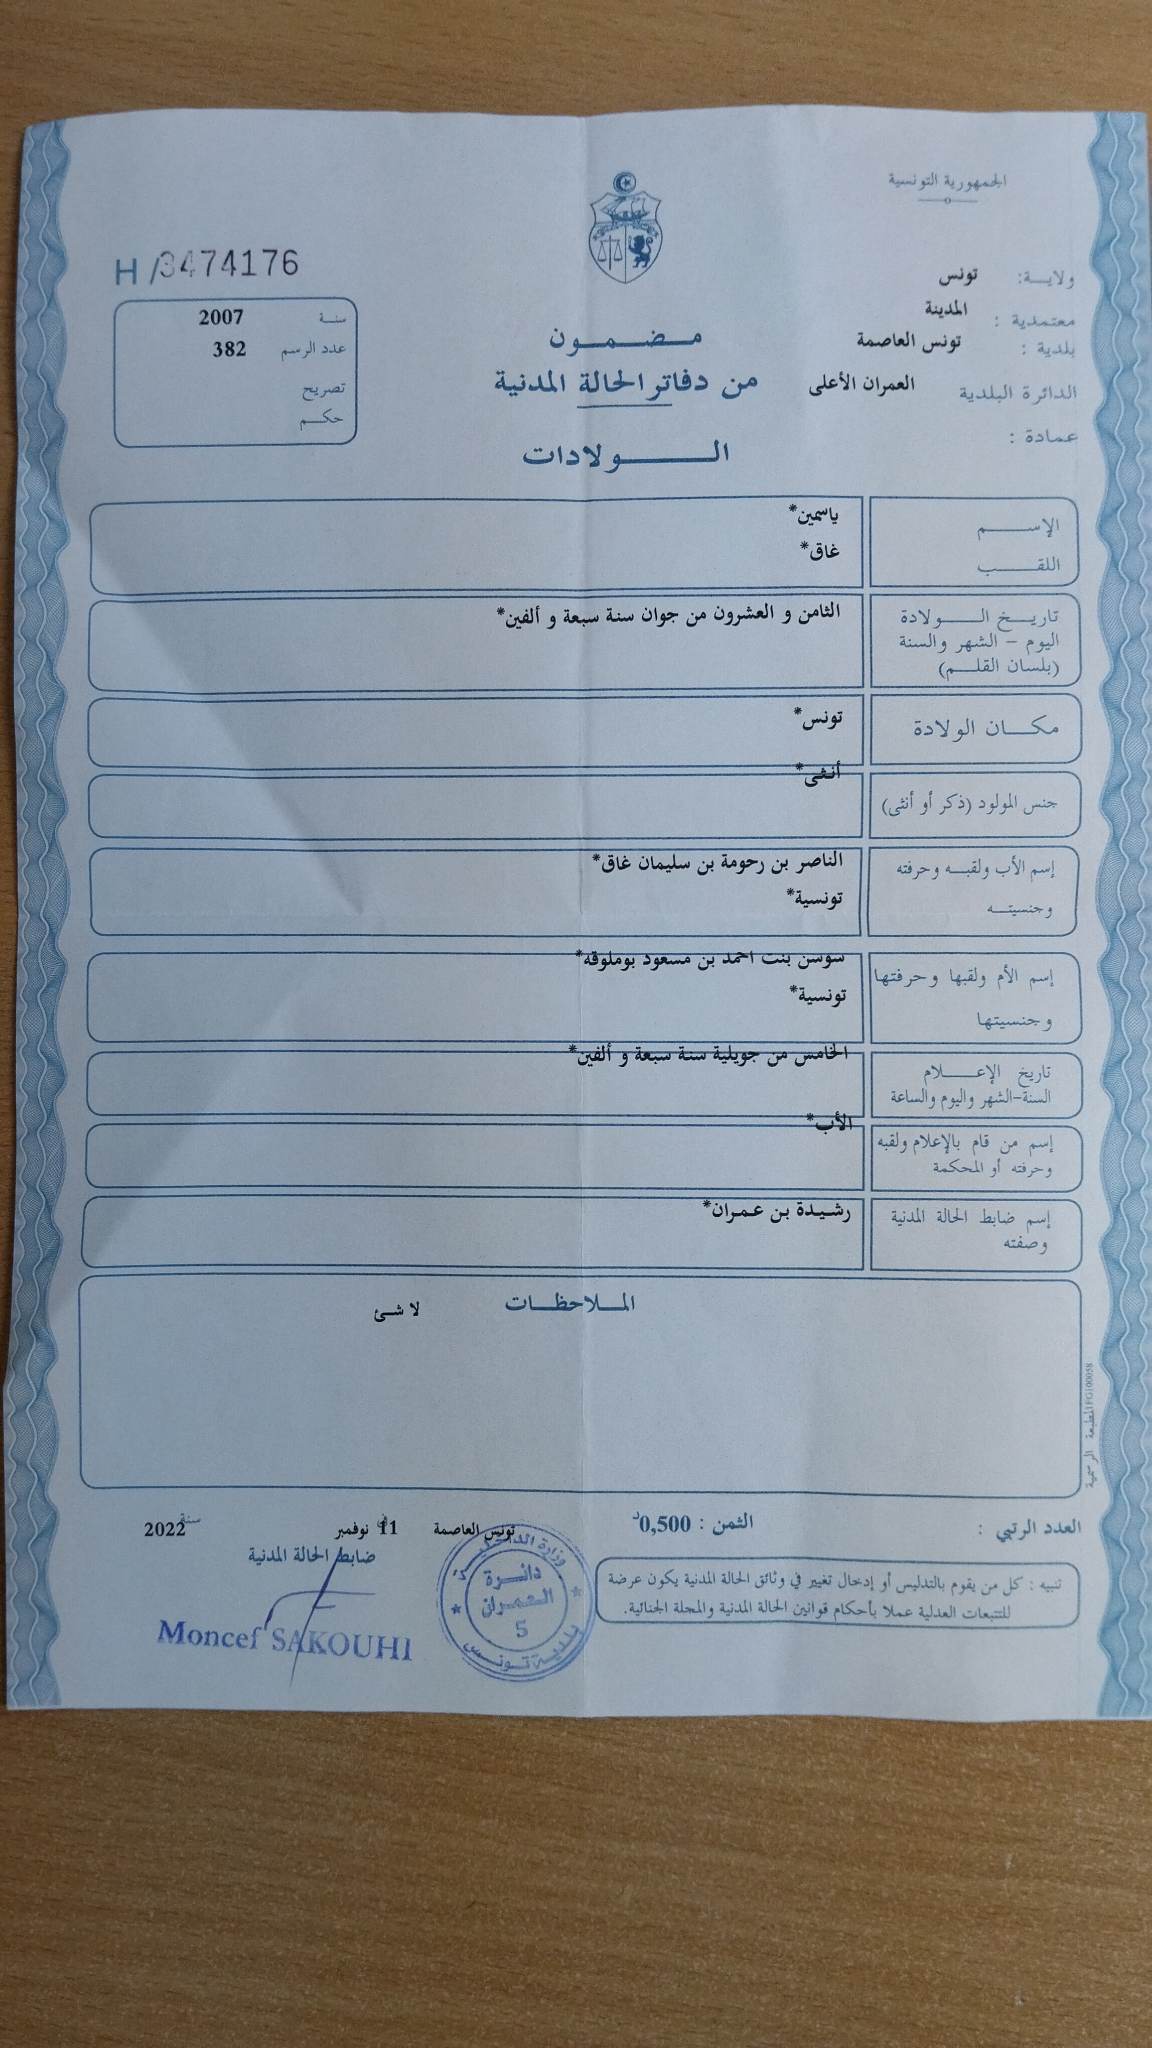 الجمهورية التونسية
ولايـــة: تونس
معتمدية : المدينة
بلدية : تونس العاصمة
الدائرة البلدية العمران الأعلى
عمادة :
H /3474176
سنـــة 2007
عدد الرسم 382
تصريح
حكـــم
مـــضـــمـــون
من دفاتر الحالة المدنية
الـــــولادات
الإســـــم ياسمين*
اللقـــــب غاق*
تاريـــخ الـــــولادة الثامن و العشرون من جوان سنة سبعة و ألفين*
اليوم – الشهر والسنة
(بلسان القلـــم)
مكـــان الولادة تونس*
جنس المولود (ذكر أو أنثى) أنثى*
إسم الأب ولقبـــه وحرفته الناصر بن رحومة بن سليمان غاق*
وجنسيتـــه تونسية*
إسم الأم ولقبها وحرفتها سوسن بنت احمد بن مسعود بوملوقه*
وجنسيتها تونسية*
تاريخ الإعـــــلام الخامس من جويلية سنة سبعة و ألفين*
السنة-الشهر واليوم والساعة
إسم من قام بالإعلام ولقبه الأب*
وحرفته أو المحكمة
إسم ضابط الحالة المدنية رشيدة بن عمران*
وصفته
المـــلاحظـــات
لا شئ
المطبعة الرسمية IFG100058
العدد الرتبي :
الثمن : 0,500د
تونس العاصمة في 11 نوفمبر سنة 2022
ضابط الحالة المدنية
Moncef SAKOUHI
وزارة الداخلية
دائرة
العمران
5
بلدية تونس
تنبيه : كل من يقوم بالتدليس أو إدخال تغيير في وثائق الحالة المدنية يكون عرضة
للتتبعات العدلية عملا بأحكام قوانين الحالة المدنية والمجلة الجنائية.